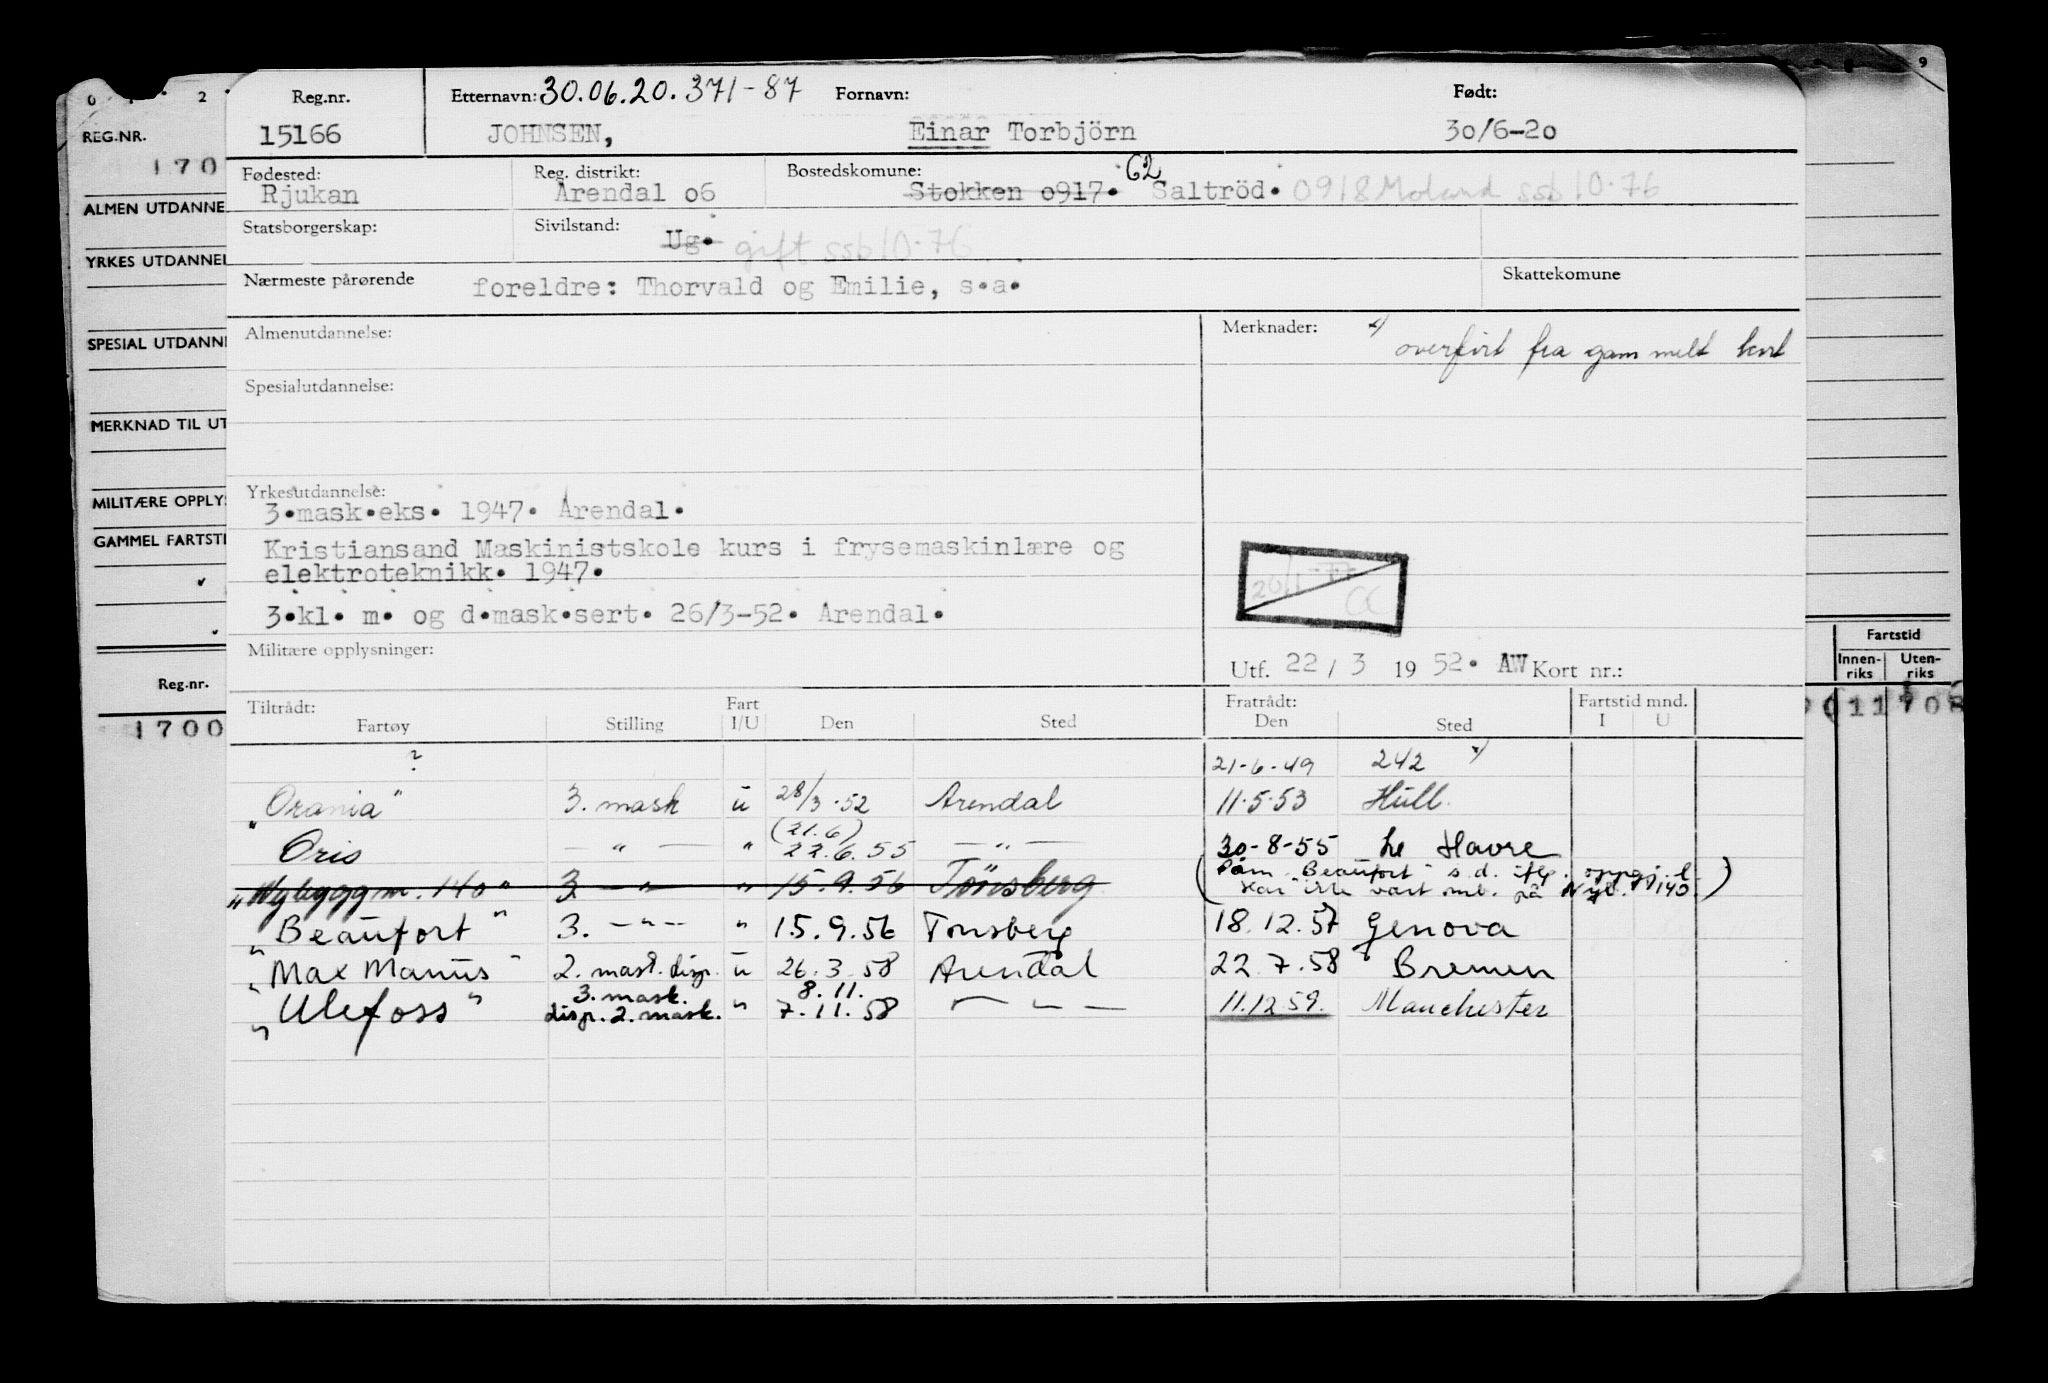 0 1 2 9
REG.NR.
170
ALMEN UTDANNE
YRKES UTDANNEL
SPESIAL UTDANN
MERKNAD TIL UT
MILITÆRE OPPLYS
GAMMEL FARTSTI
Reg.nr.
1700
Fartstid
Innen-riks Uten-riks
11708
Reg.nr. Etternavn: 30.06.20.371-87 Fornavn: Født:
15166 JOHNSEN, Einar Torbjörn 30/6-20
Fødested: Reg. distrikt: Bostedskomune: 62
Rjukan Arendal o6 Stokken o917. Saltröd. 0918 Moland ssb 10.76
Statsborgerskap: Sivilstand: Ug. gift ssb 10.76
Nærmeste pårørende foreldre: Thorvald og Emilie, s.a. Skattekomune
Almenutdannelse: Merknader: x) overført fra gammelt kort
Spesialutdannelse:
Yrkesutdannelse:
3.mask.eks. 1947. Arendal.
Kristiansand Maskinistskole kurs i frysemaskinlære og
elektroteknikk. 1947.
20/1-77 CC
3.kl. m. og d.mask.sert. 26/3-52. Arendal.
Militære opplysninger: Utf. 22/3 1952. AW Kort nr.:
Tiltrådt: Fart Fratrådt: Fartstid mnd.
Fartøy Stilling I/U Den Sted Den Sted I U
? 21-6-49 242 x)
"Orania" 3. mask u 28/3-52 Arendal 11.5.53 Hull.
(21.6)
Oris — " — " 22.6.55 — " — 30-8-55 Le Havre
"Nybygg nr. 140" 3 — " — " 15.9.56 Tönsberg (Påm. "Beaufort" s.d. iflg. oppgj.l.
Har ikke vært mb. på Nyb. 140.)
"Beaufort" 3. — " — " 15.9.56 Tønsberg 18.12.57 Genova
"Max Manus" 2. mask. disp. u 26.3.58 Arendal 22.7.58 Bremen
3. mask. 8.11.
"Ulefoss" disp. 2. mask. " 7.11.58 — " — 11.12.59. Manchester